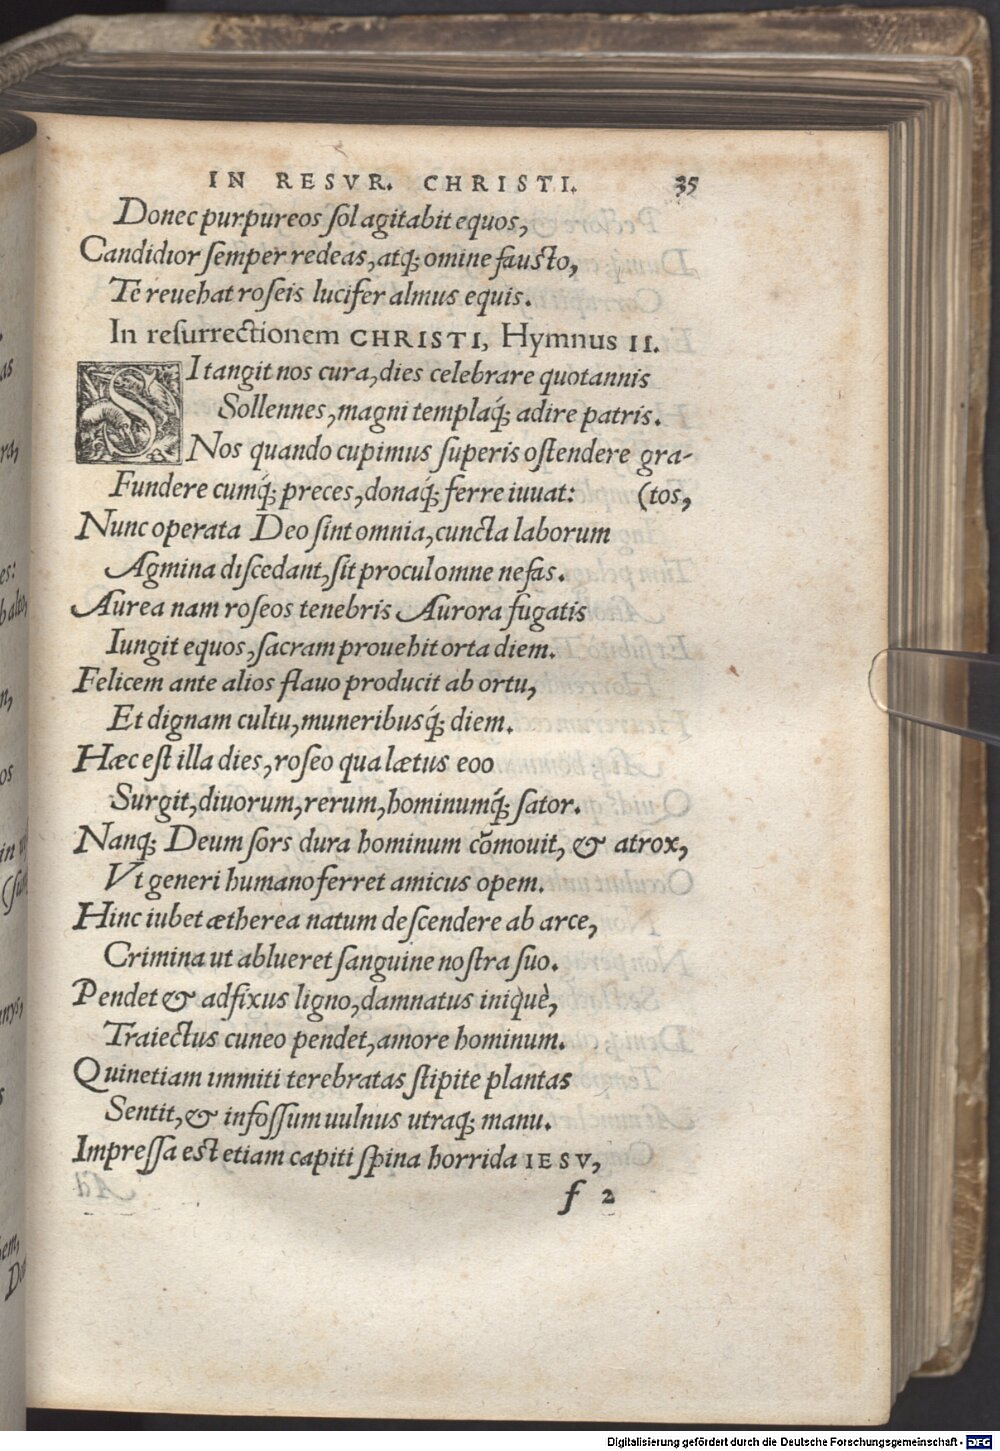 IN RESVR. CHRISTI. 35
Donec purpureos ſol agitabit equos,
Candidior ſemper redeas, atq; omine fausto,
Te reuehat roſeis lucifer almus equis.
In reſurrectionem CHRISTI, Hymnus II.
SI tangit nos cura, dies celebrare quotannis
Sollennes, magni templaq́; adire patris.
Nos quando cupimus ſuperis oſtendere gra-
Fundere cumq́; preces, donaq́; ferre iuuat: (tos,
Nunc operata Deo ſint omnia, cuncta laborum
Agmina diſcedant, ſit procul omne nefas.
Aurea nam roſeos tenebris Aurora fugatis
Iungit equos, ſacram prouehit orta diem.
Felicem ante alios flauo producit ab ortu,
Et dignam cultu, muneribusq́; diem.
Hæc eſt illa dies, roſeo qua lætus eoo
Surgit, diuorum, rerum, hominumq́; ſator.
Nanq; Deum ſors dura hominum cōmouit, & atrox,
Vt generi humano ferret amicus opem.
Hinc iubet ætherea natum deſcendere ab arce,
Crimina ut ablueret ſanguine noſtra ſuo.
Pendet & adfixus ligno, damnatus iniquè,
Traiectus cuneo pendet, amore hominum.
Quinetiam immiti terebratas ſtipite plantas
Sentit, & infoſſum uulnus utraq; manu.
Impreſſa est etiam capiti ſpina horrida IESV,
f 2
Digitalisierung gefördert durch die Deutsche Forschungsgemeinschaft - DFG